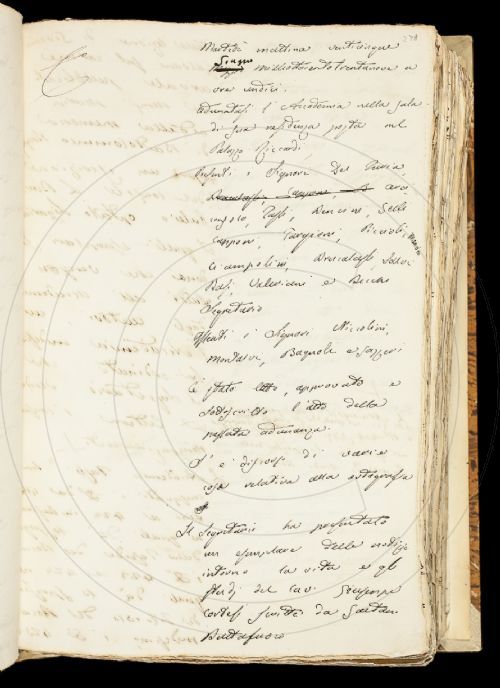 278
Martedì mattina venticinque
Giugno milleottocentotrentanove a
ore undici.
Adunatasi l'Accademia nella sala
di sua residenza posta nel
Palazzo Riccardi,
Presenti i Signori Del Furia,
Bencini, Gelli
Capponi, Targioni, Piccioli,
Ciampolini, Brucalassi, Salvi
Basi, Valeriani e Becchi
Segretario
Assenti i Signori Niccolini,
Montalvi, Bagnoli e
È stato letto, approvato e
sottoscritto l'atto della
passata adunanza.
S'è discorso di varie
cose relative alla ortografia
Il Segretario ha presentato
un esemplare delle notizie
intorno la vita e gli
studj del Cav. Giuseppe
scritte da Gaetano